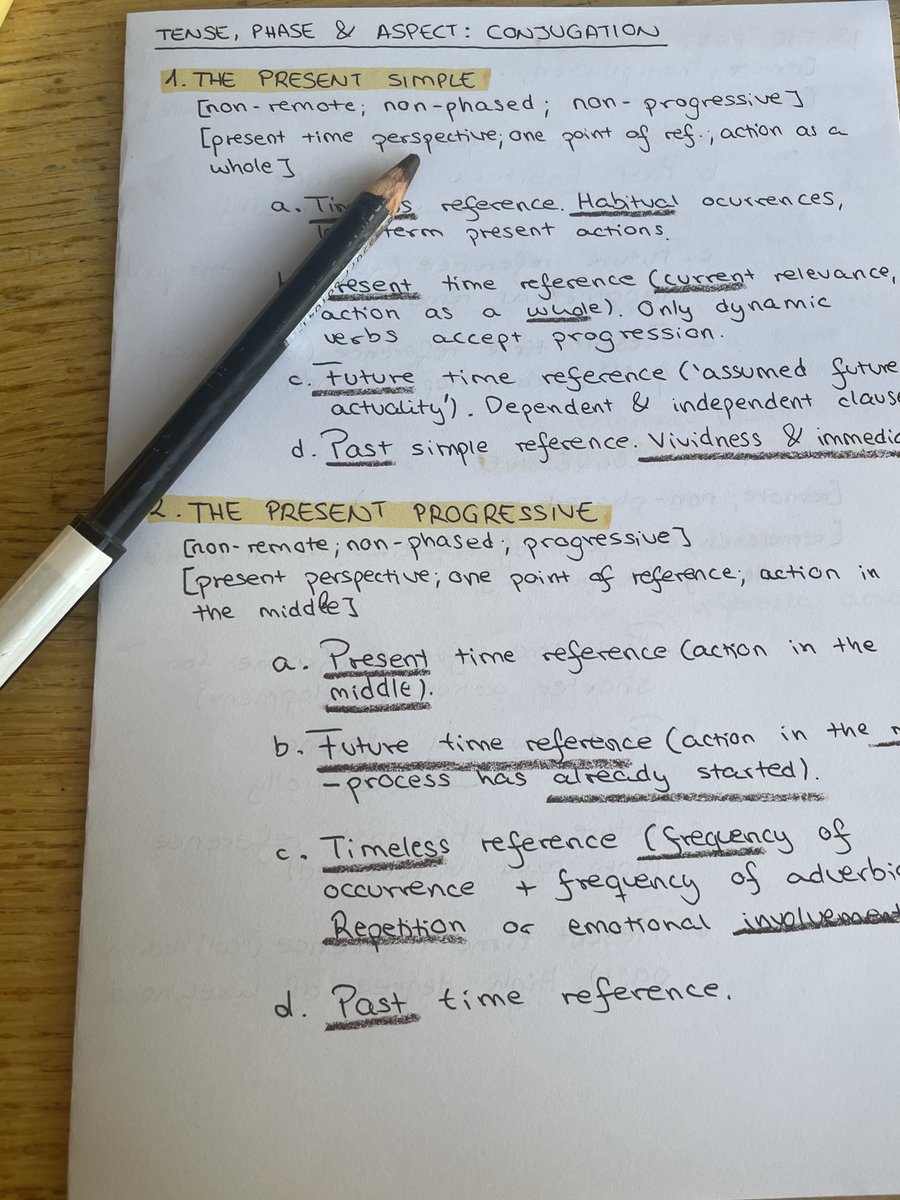 TENSE, PHASE & ASPECT: CONJUGATION
1. THE PRESENT SIMPLE
[non-remote; non-phased; non-progressive]
[present time perspective; one point of ref.; action as a
whole]
a. reference. Habitual ocurrences,
term present actions.
resent time reference (current relevance,
action as a whole). Only dynamic
verbs accept progression.
c. Future time reference ('assumed future
actuality'). Dependent & independent clause
d. Past simple reference. Vividness & immedia
2. THE PRESENT PROGRESSIVE
[non-remote; non-phased; progressive]
[present perspective; one point of reference; action in
the middle]
a. Present time reference (action in the
middle).
b. Future time reference (action in the
-process has already started).
c. Timeless reference (frequency of
occurrence + frequency of adverbia
Repetition or emotional involvement
d. Past time reference.